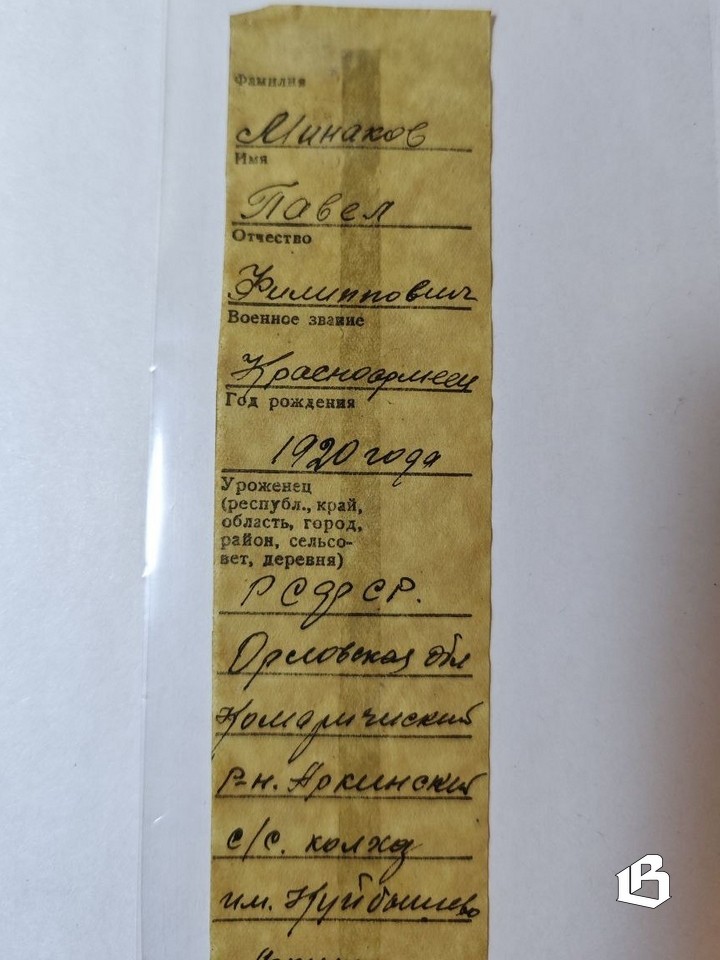 Фамилия
Минаков
Имя
Павел
Отчество
Филиппович
Военное звание
Красноармеец
Год рождения
1920 года
Уроженец
(республ., край,
область, город,
район, сельсо-
вет, деревня)
РСФСР.
Орловская обл
Комаричиский
р-н. Аркинский
с/с. колхд
им. Куйбышево